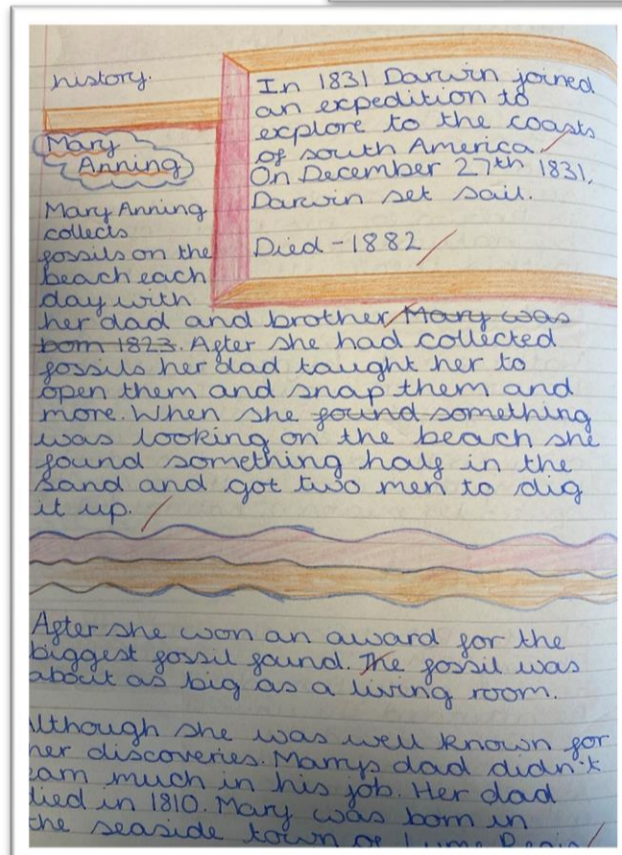 history.
In 1831 Darwin joined
an expedition to
explore to the coasts
of south America
On December 27th 1831,
Darwin set sail.
Died - 1882
Mary
Anning
Mary Anning
collects
fossils on the
beach each
day with
her dad and brother. Mary was
born 1823. After she had collected
fossils her dad taught her to
open them and snap them and
more. When she found something
was looking on the beach she
found something half in the
sand and got two men to dig
it up.
After she won an award for the
biggest fossil found. The fossil was
about as big as a living room.
lthough she was well known for
her discoveries. Marrys dad didn't
earn much in his job. Her dad
died in 1810. Mary was born in
the seaside town of Lyme Regis